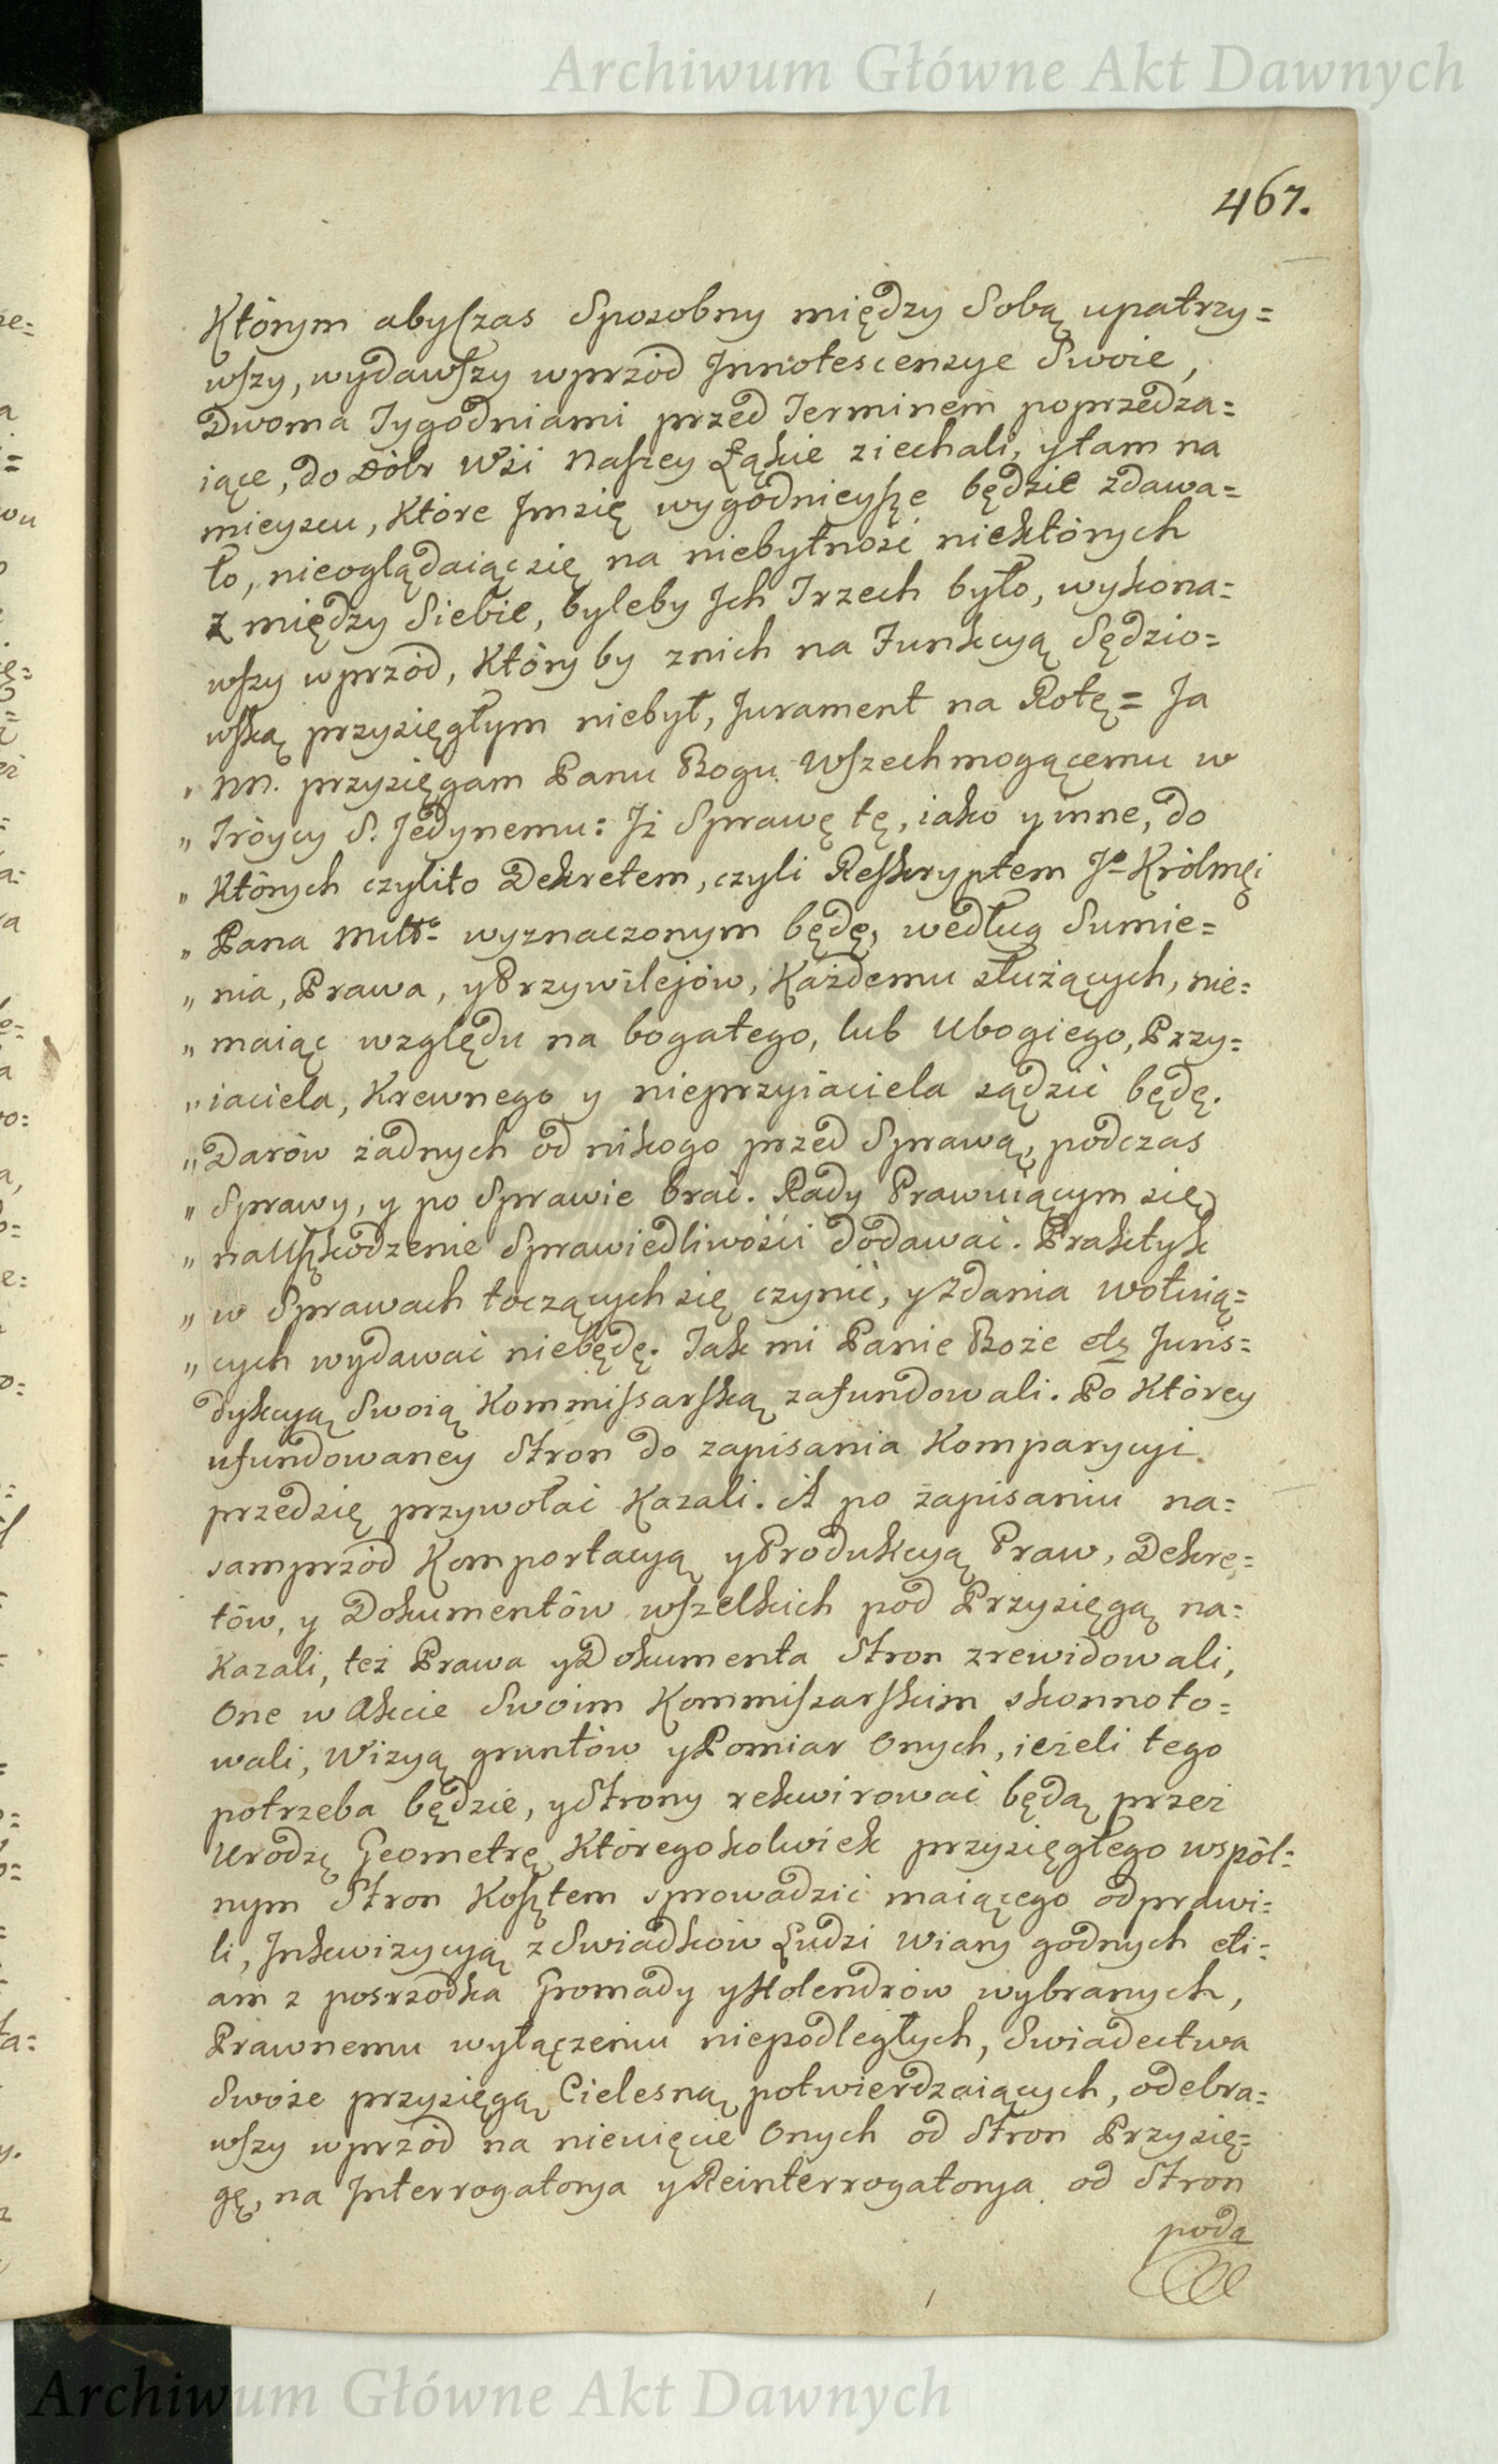 Archiwum Główne Akt Dawnych
467.
Którym abyſzas Sposobny między Sobą upatrzy=
wſzy, wydawſzy wprzód Innotescensye Swoie,
Dwoma Tygodniami przed Terminem poprzedza=
iące, do Dóbr Wśi Naſzey Łąkie ziechali, ytam na
mieyscu, Które Imsię wygodnieyſze będzie zdawa=
ło, nieoglądaiącsię na niebytność niektórych
z między Siebie, byleby Ich Trzech było, wykona=
wſzy wprzód, Który by znich na Funkcyą Sędzio=
wſką przysięgłym niebył, Jurament na Rotę= Ja
„ NN. przysięgam Panu Bogu Wſzechmogącemu w
„ Tróycy S. Jedynemu: Iż Sprawę tę, iako y inne, do
„ Których czylito Dekretem, czyli Reſkryptem Jo Królmęi
„ Pana Mttto wyznaczonym będę, według Sumie=
„ nia, Prawa, y Przywilejów, Każdemu służących, nie=
„ maiąc względu na bogatego, lub Ubogiego, Przy=
„ iaciela, Krewnego y nieprzyiaciela sądzić będę.
„ Darów żadnych od nikogo przed Sprawą, podczas
„ Sprawy, y po Sprawie brać. Rady Prawuiącym się
„ naUſzkodzenie Sprawiedliwości dodawać. Praktyk
„ w Sprawach toczących się czynić, y Zdania wotuią=
„ cych wydawać niebędę. Tak mi Panie Boże etz Juris=
dykcyą Swoią Kommiſsarſką zafundowali. Po Którey
ufundowaney Stron do zapisania Komparycyi
przedsię przywołać Kazali. A po zapisaniu na=
samprzód Komportacyą y Produkcyą Praw, Dekre=
tów, y Dokumentów wſzelkich pod Przysięgą na=
Kazali, też Prawa y Dokumenta Stron zrewidowali,
One w Akcie Swoim Kommiſsarſkim skonnoto=
wali, Wizyą gruntów y Pomiar Onych, ieżeli tego
potrzeba będzie, y Strony rekwirować będą przez
Urodzę Geometrę Któregokolwiek przysięgłego wspól=
nym Stron Koſztem sprowadzić maiącego odprawi=
li, Inkwizycyą z Swiadków Ludzi Wiary godnych eti=
am z posrzodka Gromady y Holendrów wybranych,
Prawnemu wyłączeniu niepodległych, Swiadectwa
Swoie przysięgą Cielesną potwierdzaiących, odebra=
wſzy wprzód na nieuięcie Onych od Stron Przysię=
gę, na Interrogatorya y Reinterrogatorya od Stron
poda
Archiwum Główne Akt Dawnych